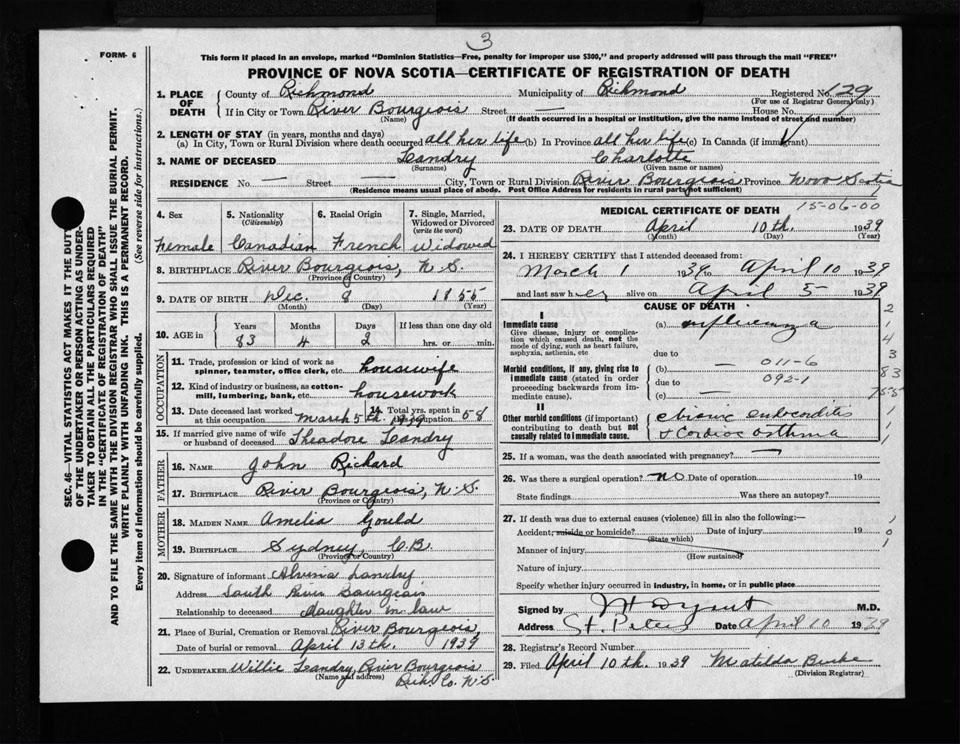 3
FORM- 6
This form if placed in an envelope, marked "Dominion Statistics—Free, penalty for improper use $300," and properly addressed will pass through the mail "FREE"
PROVINCE OF NOVA SCOTIA—CERTIFICATE OF REGISTRATION OF DEATH
SEC. 46—VITAL STATISTICS ACT MAKES IT THE DUTY
OF THE UNDERTAKER OR PERSON ACTING AS UNDER-
TAKER TO OBTAIN ALL THE PARTICULARS REQUIRED
IN THE "CERTIFICATE OF REGISTRATION OF DEATH"
AND TO FILE THE SAME WITH THE DIVISION REGISTRAR WHO SHALL ISSUE THE BURIAL PERMIT.
WRITE PLAINLY WITH UNFADING INK. THIS IS A PERMANENT RECORD.
Every item of information should be carefully supplied. (See reverse side for instructions.)
1. PLACE OF DEATH County of Richmond Municipality of Richmond Registered No. 29
(For use of Registrar General only)
If in City or Town River Bourgeois Street — House No.
(Name) (If death occurred in a hospital or institution, give the name instead of street and number)
2. LENGTH OF STAY (in years, months and days)
(a) In City, Town or Rural Division where death occurred all her life (b) In Province all her life (c) In Canada (if immigrant)
3. NAME OF DECEASED Landry Charlotte
(Surname) (Given name or names)
RESIDENCE No. — Street — City, Town or Rural Division River Bourgeois Province Nova Scotia
(Residence means usual place of abode. Post Office Address for residents in rural parts not sufficient)
15-06-00
4. Sex 5. Nationality (Citizenship) 6. Racial Origin 7. Single, Married, Widowed or Divorced (write the word)
Female Canadian French Widowed
8. BIRTHPLACE River Bourgeois, N.S.
(Province or Country)
9. DATE OF BIRTH Dec. 8 1855
(Month) (Day) (Year)
10. AGE in Years Months Days If less than one day old
83 4 2 hrs. or min.
OCCUPATION
11. Trade, profession or kind of work as spinner, teamster, office clerk, etc. housewife
12. Kind of industry or business, as cotton-mill, lumbering, bank, etc. housework
13. Date deceased last worked at this occupation March 5th. 1939 14. Total yrs. spent in this occupation 58
15. If married give name of wife or husband of deceased Theadore Landry
FATHER
16. NAME John Richard
17. BIRTHPLACE River Bourgeois, N.S.
(Province or Country)
MOTHER
18. MAIDEN NAME Amelia Gould
19. BIRTHPLACE Sydney, C.B.
(Province or Country)
20. Signature of informant Alvina Landry
Address South River Bourgeois
Relationship to deceased daughter in law
21. Place of Burial, Cremation or Removal River Bourgeois,
Date of burial or removal April 13th. 1939
22. UNDERTAKER Willie Landry, River Bourgeois
(Name and address) Rich. Co. N.S.
MEDICAL CERTIFICATE OF DEATH
23. DATE OF DEATH April 10th. 1939
(Month) (Day) (Year)
24. I HEREBY CERTIFY that I attended deceased from:
March 1 1939 to April 10 1939
and last saw her alive on April 5 1939
CAUSE OF DEATH
I
Immediate cause (a) influenza
Give disease, injury or complication which caused death, not the mode of dying, such as heart failure, asphyxia, asthenia, etc
due to
Morbid conditions, if any, giving rise to immediate cause (stated in order proceeding backwards from immediate cause). (b) — 011-6
due to 092-1
(c) —
II
Other morbid conditions (if important) contributing to death but not causally related to immediate cause. chronic endocarditis
& Cardiac asthma
2
1
4
3
83
75-5
1
1
1
25. If a woman, was the death associated with pregnancy? —
26. Was there a surgical operation? no Date of operation 19
State findings Was there an autopsy?
27. If death was due to external causes (violence) fill in also the following:—
Accident, suicide or homicide? Date of injury 19
(State which)
Manner of injury
(How sustained)
Nature of injury
Specify whether injury occurred in industry, in home, or in public place
1
0
1
Signed by M.D.
Address St. Peters Date April 10 1939
28. Registrar's Record Number
29. Filed April 10th. 1939 Matilda Burke
(Division Registrar)